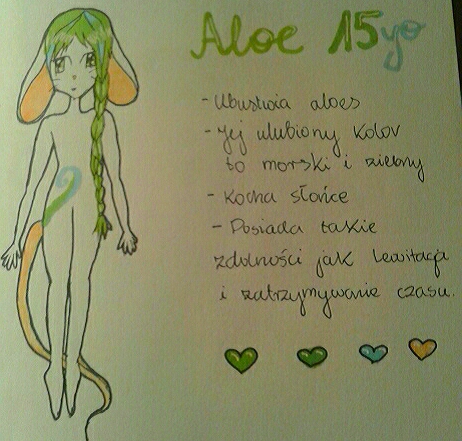 Aloe 15yo
- Ubustwia aloes
- Jej ulubiony kolor
to morski i zielony
- Kocha słońce
- Posiada takie
zdolności jak lewitacja
i zatrzymywanie czasu.